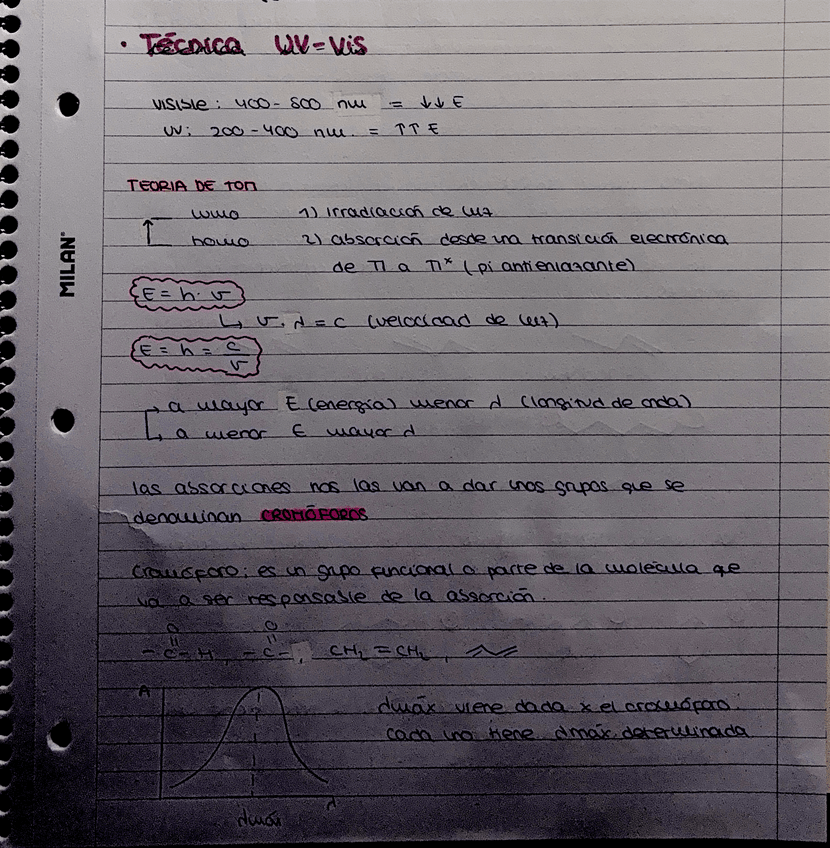 · TÉCNICA UV-Vis
VISIBLE: 400-800 nm = ↓↓ E
UV: 200-400 nm. = ↑↑ E
TEORIA DE TOM
lumo 1) irradiación de luz
homo 2) absorción desde una transición electrónica
de π a π* (pi antienlazante)
MILAN®
E = h · ν
↳ ν · λ = c (velocidad de luz)
E = h = c/ν
→ a mayor E (energía) menor λ (longitud de onda)
↳ a menor E mayor λ
las absorciones nos las van a dar unos grupos que se
denominan CROMÓFOROS
Cromóforo: es un grupo funcional o parte de la molécula que
va a ser responsable de la absorción.
O O
-C-H, -C-, CH₂=CH₂,
A
λmáx viene dada x el cromóforo.
cada uno tiene λmáx determinada
λ
λmáx